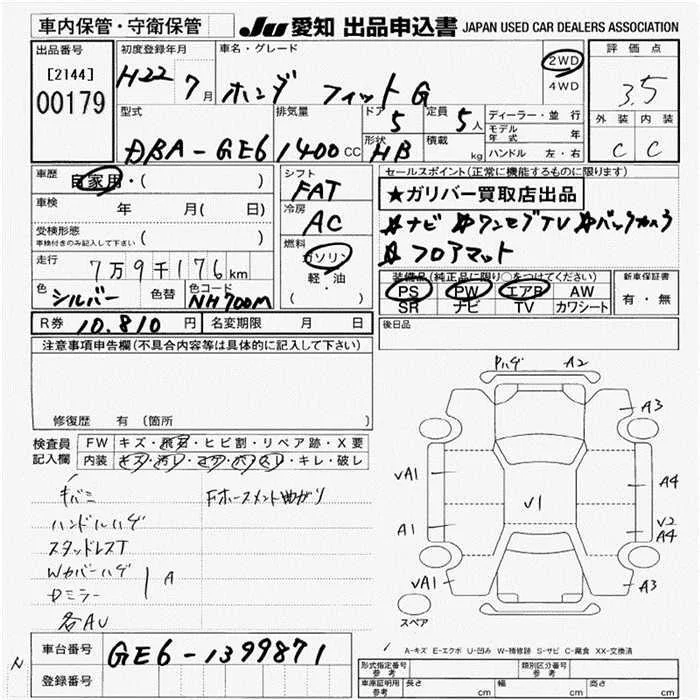 車内保管・守衛保管
JU 愛知 出品申込書 JAPAN USED CAR DEALERS ASSOCIATION
出品番号
[2144]
00179
初度登録年月
H22 7月
車名・グレード
ホンダ フィット G
2WD
4WD
評価点
3.5
外装 内装
C C
型式
DBA-GE6
排気量
1400 CC
ドア
5
定員
5人
形状
HB
積載
kg
ディーラー・並行
モデル年式 年
ハンドル 左・右
車歴
自家用・( )
車検
年 月( 日)
受検形態
車検付きのみ記入して下さい ( )
走行
7万9千176km
色
シルバー
色替
色コード
NH700M
シフト
FAT
冷房
AC
燃料
ガソリン
軽・油
( )
セールスポイント(正常に機能するものに限ります)
★ガリバー買取店出品
☆ナビ ☆ワンセグTV ☆バックカメラ
☆フロアマット
装備品(純正品に限り○をつけてください)
PS PW エアB AW
SR ナビ TV カワシート
新車保証書
有・無
R券 10.810 円
名変期限 月 日
後日品
注意事項申告欄(不具合内容等は具体的に記入して下さい)
修復歴 有 (箇所
検査員
記入欄
FW キズ・飛石・ヒビ割・リペア跡・X要
内装 キズ・汚レ・コゲ・穴・スレ・キレ・破レ
キバミ
Fホースメント曲ガリ
ハンドルハゲ
スタッドレスT
Wカバーハゲ
Dミラー
A
各AU
Pハゲ A2
A3
VA1
A4
V1
A1
V2
A4
VA1
A3
スペア
A-キズ E-エクボ U-凹み W-補修跡 S-サビ C-腐食 XX-交換済
車台番号
GE6-1399871
登録番号
N
形式指定番号
参考
類別区分番号
車庫証明用
参考
長さ cm 幅 cm 高さ cm